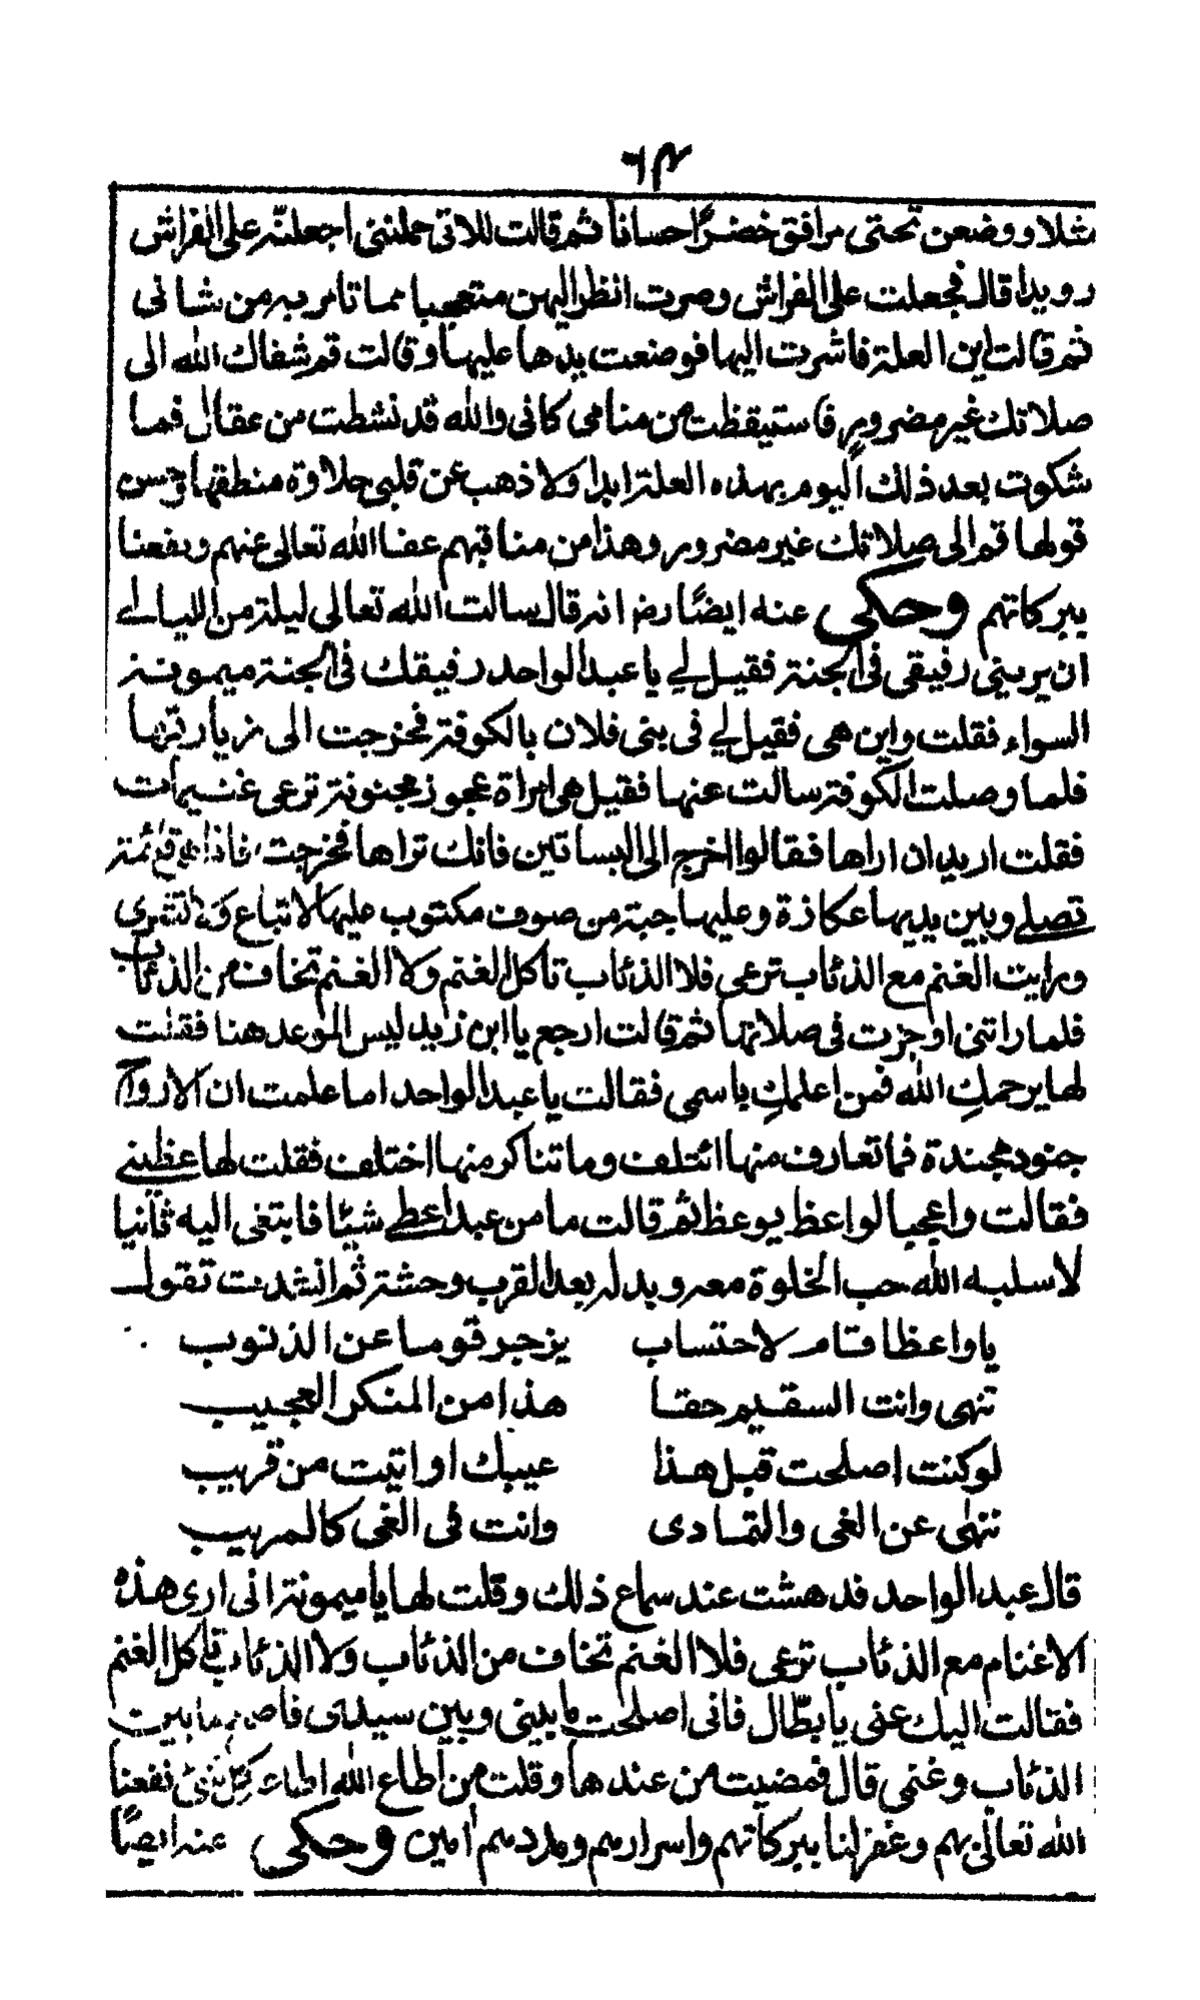 ٦٣
مثلا ووضعن تحتى مرافق خضرًا حسانا ثم قالت للاتى حملننى اجعلنّه على الفراش
رويدا قال فجعلت على الفراش وصرت انظر اليهن متعجبا مما تامر به من شانى
ثم قالت اين العلة فاشرت اليها فوضعت يدها عليها وقالت قم شفاك الله الى
صلاتك غير مضرور فاستيقظت من منامى كانى والله قد نشطت من عقال فما
شكوت بعد ذلك اليوم بهذه العلة ابدا ولا ذهب عن قلبى حلاوة منطقها وحسن
قولها قم الى صلاتك غير مضرور وهذا من مناقبهم عفا الله تعالى عنهم ونفعنا
ببركاتهم وحكى عنه ايضًا رض انه قال سالت الله تعالى ليلة من الليالے
ان يرينى رفيقى فى الجنة فقيل لے يا عبد الواحد رفيقك فى الجنة ميمونة
السواء فقلت واين هى فقيل لے فى بنى فلان بالكوفة فخرجت الى زيارتها
فلما وصلت الكوفة سالت عنها فقيل هى امراة عجوز مجنونة ترعى غنيمات
فقلت اريد ان اراها فقالوا اخرج الى البساتين فانك تراها فخرجت فاذا هى قائمة
تصلے وبين يديها عكازة وعليها جبة من صوف مكتوب عليها لا تباع ولا تشترى
ورايت الغنم مع الذئاب ترعى فلا الذئاب تاكل الغنم ولا الغنم تخاف من الذئاب
فلما راتنى اوجزت فى صلاتها ثم قالت ارجع يا ابن زيد ليس الموعد هنا فقلت
لها يرحمكِ الله فمن اعلمكِ باسمى فقالت يا عبد الواحد اما علمت ان الارواح
جنود مجندة فما تعارف منها ائتلف وما تناكر منها اختلف فقلت لها عظينے
فقالت واعجبا لواعظ يوعظ ثم قالت ما من عبد اعطے شيئا فابتغى اليه ثانيا
لا سلبه الله حب الخلوة معه وبدله بعد القرب وحشة ثم انشدت تقول
يا واعظا قام لاحتساب يزجر قوما عن الذنوب
تنهى وانت السقيم حقا هذا من المنكر العجيب
لو كنت اصلحت قبل هذا عيبك او اتيت من قريب
تنهى عن الغى والتمادى وانت فى الغى كالمريب
قال عبد الواحد فدهشت عند سماع ذلك وقلت لها يا ميمونة انى ارى هذه
الاغنام مع الذئاب ترعى فلا الغنم تخاف من الذئاب ولا الذئاب تاكل الغنم
فقالت اليك عنى يا بطّال فانى اصلحت ما بينى وبين سيدى فاصلح ما بين
الذئاب وغنمى قال فمضيت من عندها وقلت من اطاع الله اطاعه كل شئ نفعنا
الله تعالى بهم وغفر لنا ببركاتهم واسرارهم ومددهم امين وحكى عنه ايضًا